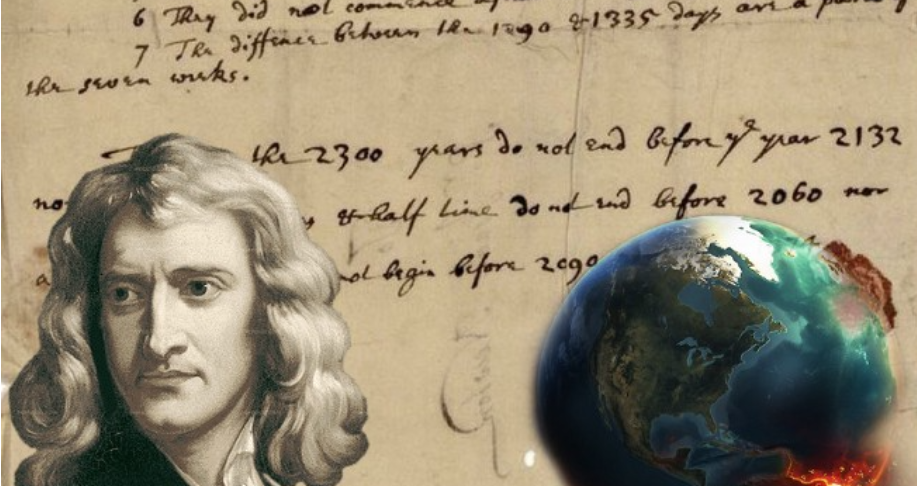 6 They did not commence
7 The diffence between the 1290 & 1335 days are a
the seven weeks.
the 2300 years do not end before yᵉ year 2132
& half time do not end before 2060 nor
begin before 2090